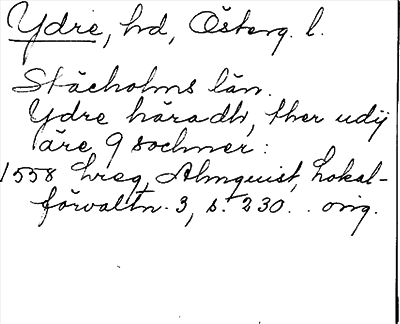 Ydre, hd, Österg. l.
Stächolms län.
Ydre häradh, ther udij
äre 9 sochner:
1558 hreg, Almquist, Lokal-
förvaltn. 3, s. 230. . orig.